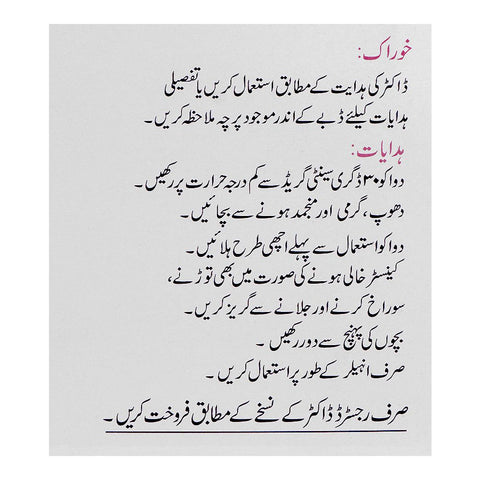 خوراک:
ڈاکٹر کی ہدایت کے مطابق استعمال کریں یا تفصیلی
ہدایات کیلئے ڈبے کے اندر موجود پرچہ ملاحظہ کریں۔
ہدایات:
دوا کو ۳۰ ڈگری سینٹی گریڈ سے کم درجہ حرارت پر رکھیں۔
دھوپ، گرمی اور منجمد ہونے سے بچائیں۔
دوا کو استعمال سے پہلے اچھی طرح ہلائیں۔
کینسٹر خالی ہونے کی صورت میں بھی توڑنے،
سوراخ کرنے اور جلانے سے گریز کریں۔
بچوں کی پہنچ سے دور رکھیں۔
صرف انہیلر کے طور پر استعمال کریں۔
صرف رجسٹرڈ ڈاکٹر کے نسخے کے مطابق فروخت کریں۔